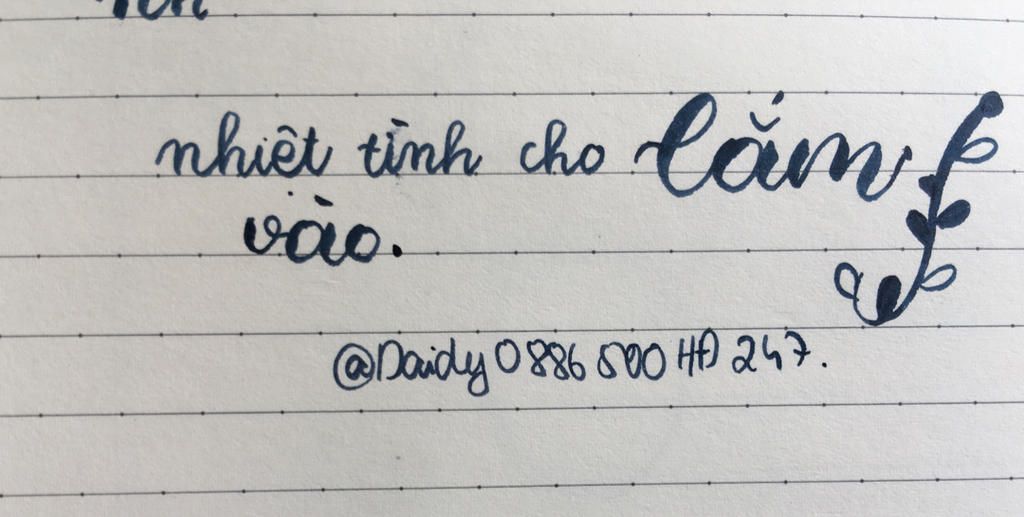 nhiệt tình cho lắm
vào.
@Daidy 0886 500 HĐ 247.